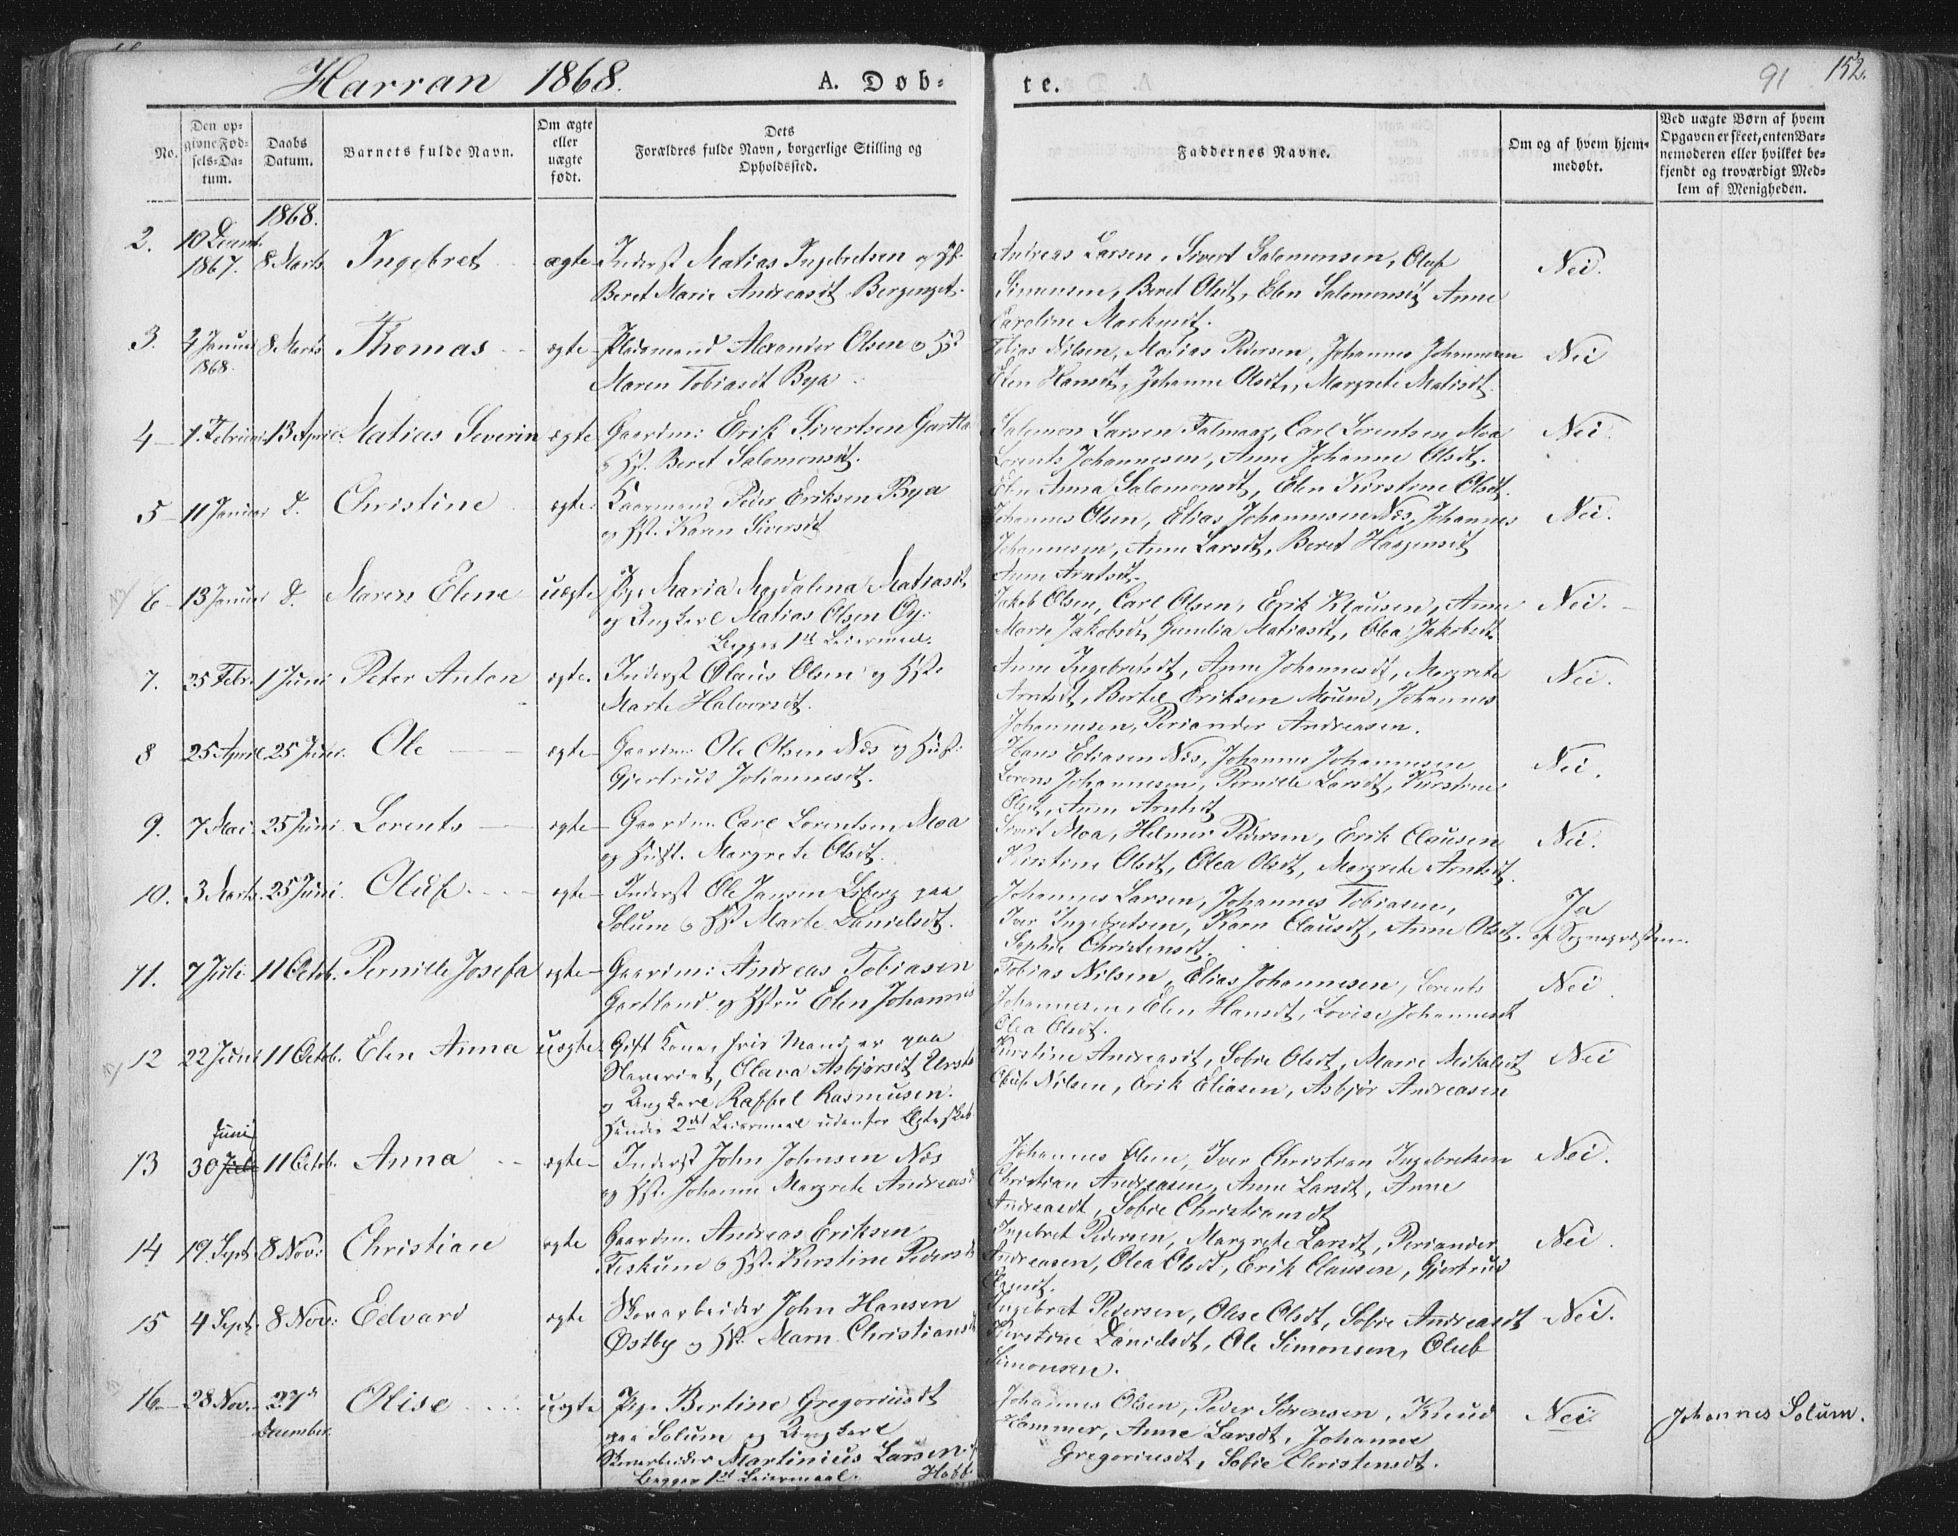 Harran 1868.
A. Døb-
te.
91
152.
No.
Den op-
givne Fød-
sels-Da-
tum.
Daabs
Datum.
Barnets fulde Navn.
Om ægte
eller
uægte
født.
Dets
Forældres fulde Navn, borgerlige Stilling og
Opholdssted.
Faddernes Navne.
Om og af hvem hjem-
medøbt.
Ved uægte Børn af hvem
Opgaven er skeet, enten Bar-
nemoderen eller hvilket be-
kjendt og troværdigt Med-
lem af Menigheden.
1868.
2. 10 Decemb. 1867. 8 Marts Ingebret ægte
Inderst Matias Ingebretsen og Hst:
Beret Marie Andreasdt
Andreas Larsen, Sivert Salomonsen, Oluf
Simonsen, Beret Olsdt, Elen Salomonsdt Anne
Caroline Markusdt.
Nei.
3. Januar 1868. 8 Marts Thomas ægte
Pladsmand Alexander Olsen o Hst
Maren Tobiasdt Bya
Tobias Nilsen, Matias Pedersen, Johannes Johannesen
Elen Hansdt, Johanne Olsdt, Margrete Matisdt.
Nei
4 1. Februar 13 April Matias Severin ægte
Gaardm: Erik Sivertsen Gartla
o Hst. Beret Salomonsdt.
Salomon Larsen Carl Lorentsen Moa
Lorents Johannesen, Anne Johanne Olsdt.
Elen Anna Salomonsdt, Elen Kirstine Olsdt.
Nei.
5 11 Januar d. Christine ægte
Kaarmand Peder Eriksen Bya
og Hst. Karen Siversdt
Johannes Olsen, Elias Johannesen Næs, Johannes
Johannesen, Anne Larsdt, Beret Haagensdt
Anne Arntsdt.
Nei.
6 13 Januar d. Maren Elene uægte
Pige Maria Magdalena Matiasdt
og Ungkarl Matias Olsen Øy.
Begges 1st Leiermaal.
Jakob Olsen, Carl Olsen, Erik Klausen, Anne
Marie Jakobsdt, Gunilia Matiasdt, Olea Jakobsdt
Nei.
7. 25 Febr. 1 Juni Peter Anton ægte.
Inderst Olaus Olsen og Hst.
Marte Halvorsdt.
Anne Ingebretsdt, Anne Johannesdt, Margrete
Arntsdt, Bertel Eriksen Moum, Johannes
Johannesen, Periander Andreasen.
Nei.
8 25 April 25 Juni. Ole ægte
Gaardm: Ole Olsen Næs og Hust:
Gjertrud Johannesdt.
Hans Eliasen Næs, Johannes Johannesen
Lorens Johannesen, Pernille Larsdt, Kirstine
Olsdt, Anne Arntsdt
Nei.
9. 7 Mai. 25 Juni. Lorents ægte
Gaardm: Carl Lorentsen Moa
og Hust. Margrete Olsdt.
Sivert Moa, Helmer Pedersen, Erik Clausen
Kirstine Olsdt, Olea Olsdt, Margrete Arntsdt.
Nei.
10. 3 Marts. 25 Juni. Oluf ægte
Inderst Ole Jansen paa
Solum o Hst Marte Danielsdt.
Johannes Larsen, Johannes Tobiasen,
Iver Ingebretsen, Karn Clausdt, Anne Olsdt.
Sophie Christensdt.
Ja
af Sognepræsten.
11. 7 Juli 11 Octob. Pernille Josefa ægte
Gaardm: Andreas Tobiasen
Gartland og Hstru Elen Johannes
Tobias Nilsen, Elias Johannesen, Lorents
Johannesen, Elen Hansdt, Lovise Johannesdt
Olea Olsdt.
Nei
12 22 Juni 11 Octob. Elen Anna uægte
Gift Kone, hvis Mand er paa
Slaveriet, Olava Asbjørsdt
og Ungkarl Raffel Rasmusen.
Hendes 2det Leiermaal udenfor Ægteskab
Kirstine Andreasdt, Sobie Olsdt, Marie Mikalsdt
Oluf Nilsen, Erik Eliasen, Asbjør Andreasen
Nei
13 Juni 30 11 Octob. Anna ægte
Inderst John Johnsen Næs
og Hst. Johanne Margrete Andreasd
Johannes Olsen, Iver Christian Ingebretsen
Christian Andreasen, Anne Larsdt, Anne
Andreasdt, Sobie Christiansdt
Nei.
14 19. Sept. 8 Nov: Christian ægte
Gaardm. Andreas Eriksen
Fiskum o Hst. Kirstine Pedersdt
Ingebret Pedersen, Margrete Larsdt, Periander
Andreasen, Olea Olsdt, Erik Clausen, Gjertrud
Nei.
15 4 Sept. 8 Nov: Edvard ægte
Skovarbeider John Hansen
Østby og Hst. Marn Christiansdt
Ingebret Pedersen, Olise Olsdt, Sobie Andreasdt
Kirstine Danielsdt, Ole Simonsen, Oluf
Simonsen.
Nei.
16 28 Nov. 27d December. Olise uægte
Pige Bertine Gregoriusdt
paa Solum og Ungkarl
Skovarbeider Martinius Larsen
Begges 1st Leiermaal.
Johannes Olsen, Peder Sørensen, Knud
Hammer, Anne Larsdt, Johanne
Gregoriusdt, Sobie Christensdt.
Nei
Johannes Solum.